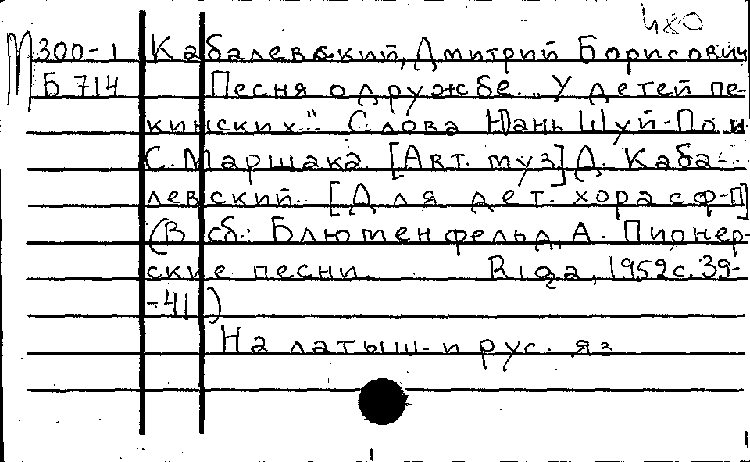 480
М 300-1 Кабалевский, Дмитрий Борисович
Б 714 Песня о дружбе. „У детей пе-
кинских". Слова Юань Шуй-По и
С. Маршака. [Авт. муз.] Д. Каба-
левский. [Для дет. хора с ф-п]
(В сб.: Блюменфельд, А. Пионер-
ские песни. Riga, 1952 с. 39-
-41.)
На латыш. и рус. яз.